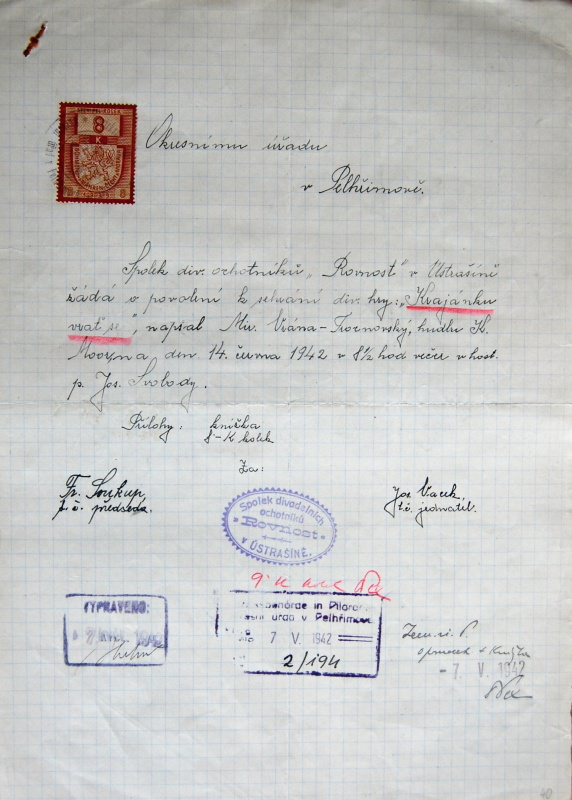 8
K
8 8
Okresnímu úřadu
v Pelhřimově.
Spolek div. ochotníků „Rovnost" v Ústrašíně
žádá o povolení k sehrání div. hry: „Krajánku
vrať se", napsal Mir. Vrána-Trznovský, hudba K.
Moor na den 14. června 1942 v 8½ hod večer v host.
p. Jos. Svobody.
Přílohy: knížka
8-K kolek
Za:
Fr. Soukup,
t. č. předseda.
Jos Vacek,
t. č. jednatel.
Spolek divadelních
ochotníků
Rovnost
v ÚSTRAŠÍNĚ.
VYPRAVENO:
in Pilgram
úřad v Pelhřimově
7 V. 1942
2/194
- 7 V. 1942
40